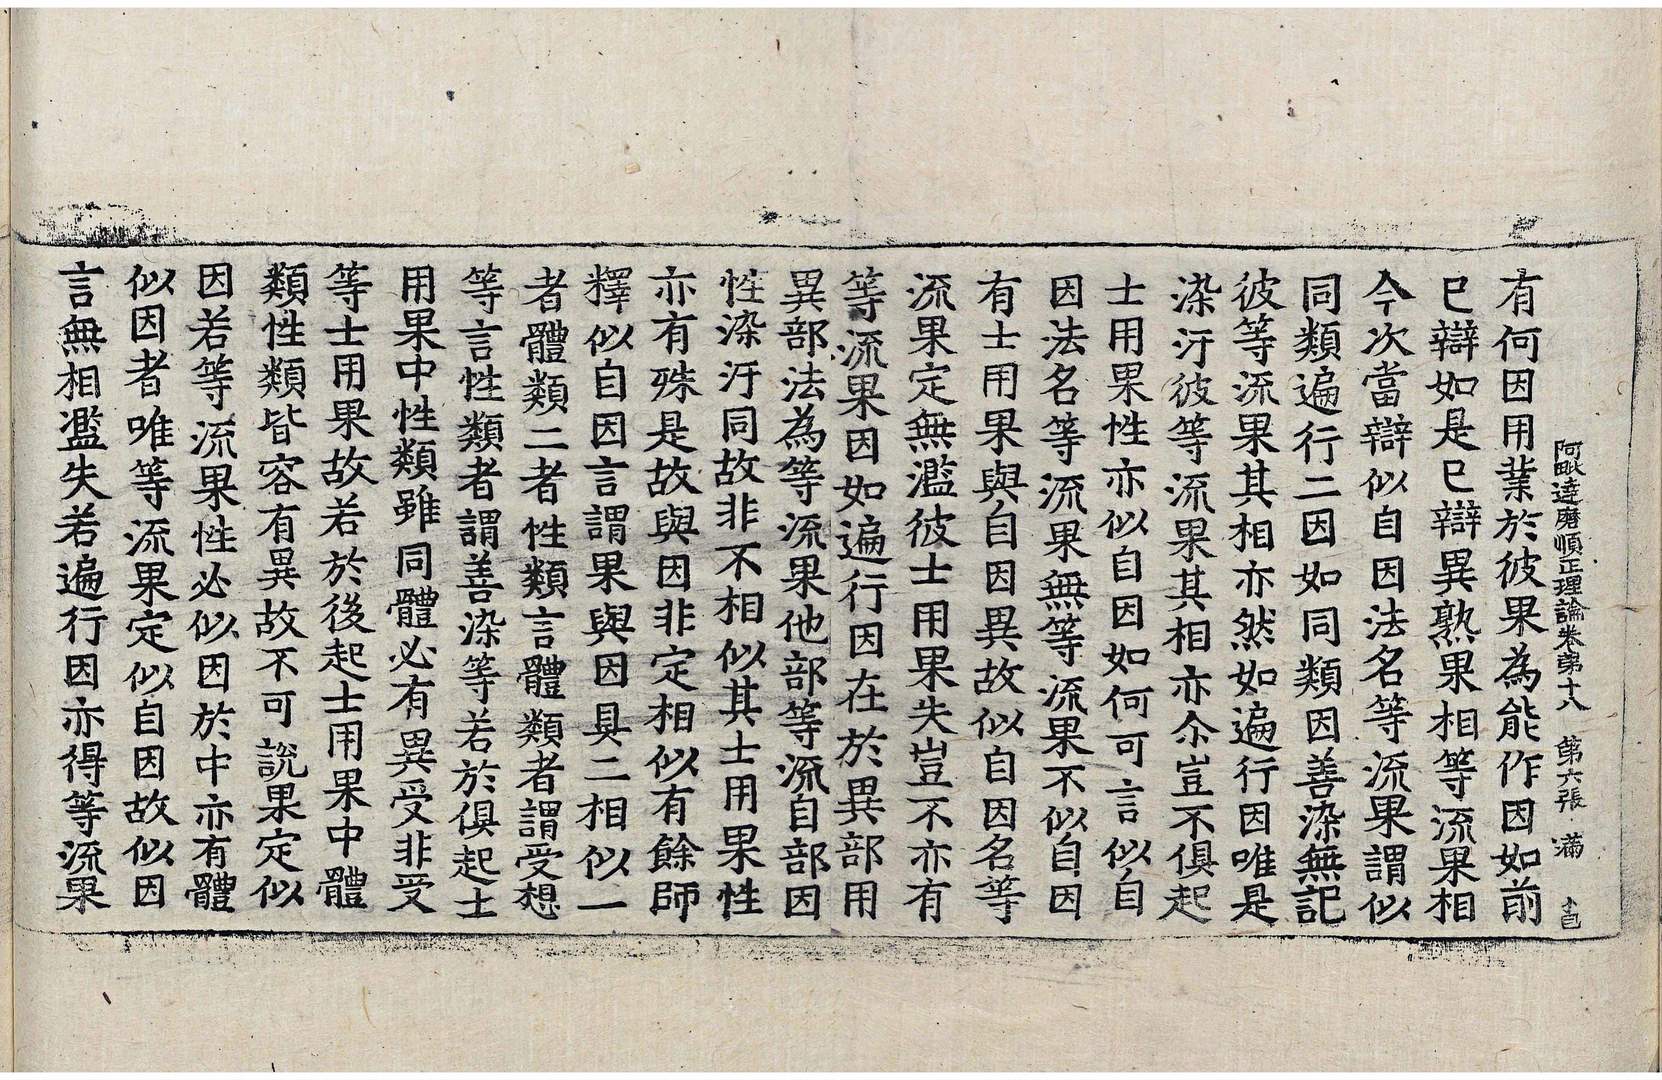 阿毗達磨順正理論卷第十八 第六張 滿
有何因用業於彼果為能作因如前
已辯如是已辯異熟果相等流果相
今次當辯似自因法名等流果謂似
同類遍行二因如同類因善染無記
彼等流果其相亦然如遍行因唯是
染汙彼等流果其相亦尒豈不俱起
士用果性亦似自因如何可言似自
因法名等流果無等流果不似自因
有士用果與自因異故似自因名等
流果定無濫彼士用果失豈不亦有
等流果因如遍行因在於異部用
異部法為等流果他部等流自部因
性染汙同故非不相似其士用果性
亦有殊是故與因非定相似有餘師
釋似自因言謂果與因具二相似一
者體類二者性類言體類者謂受想
等言性類者謂善染等若於俱起士
用果中性類雖同體必有異受非受
等士用果故若於後起士用果中體
類性類皆容有異故不可說果定似
因若等流果性必似因於中亦有體
似因者唯等流果定似自因故似因
言無相濫失若遍行因亦得等流果